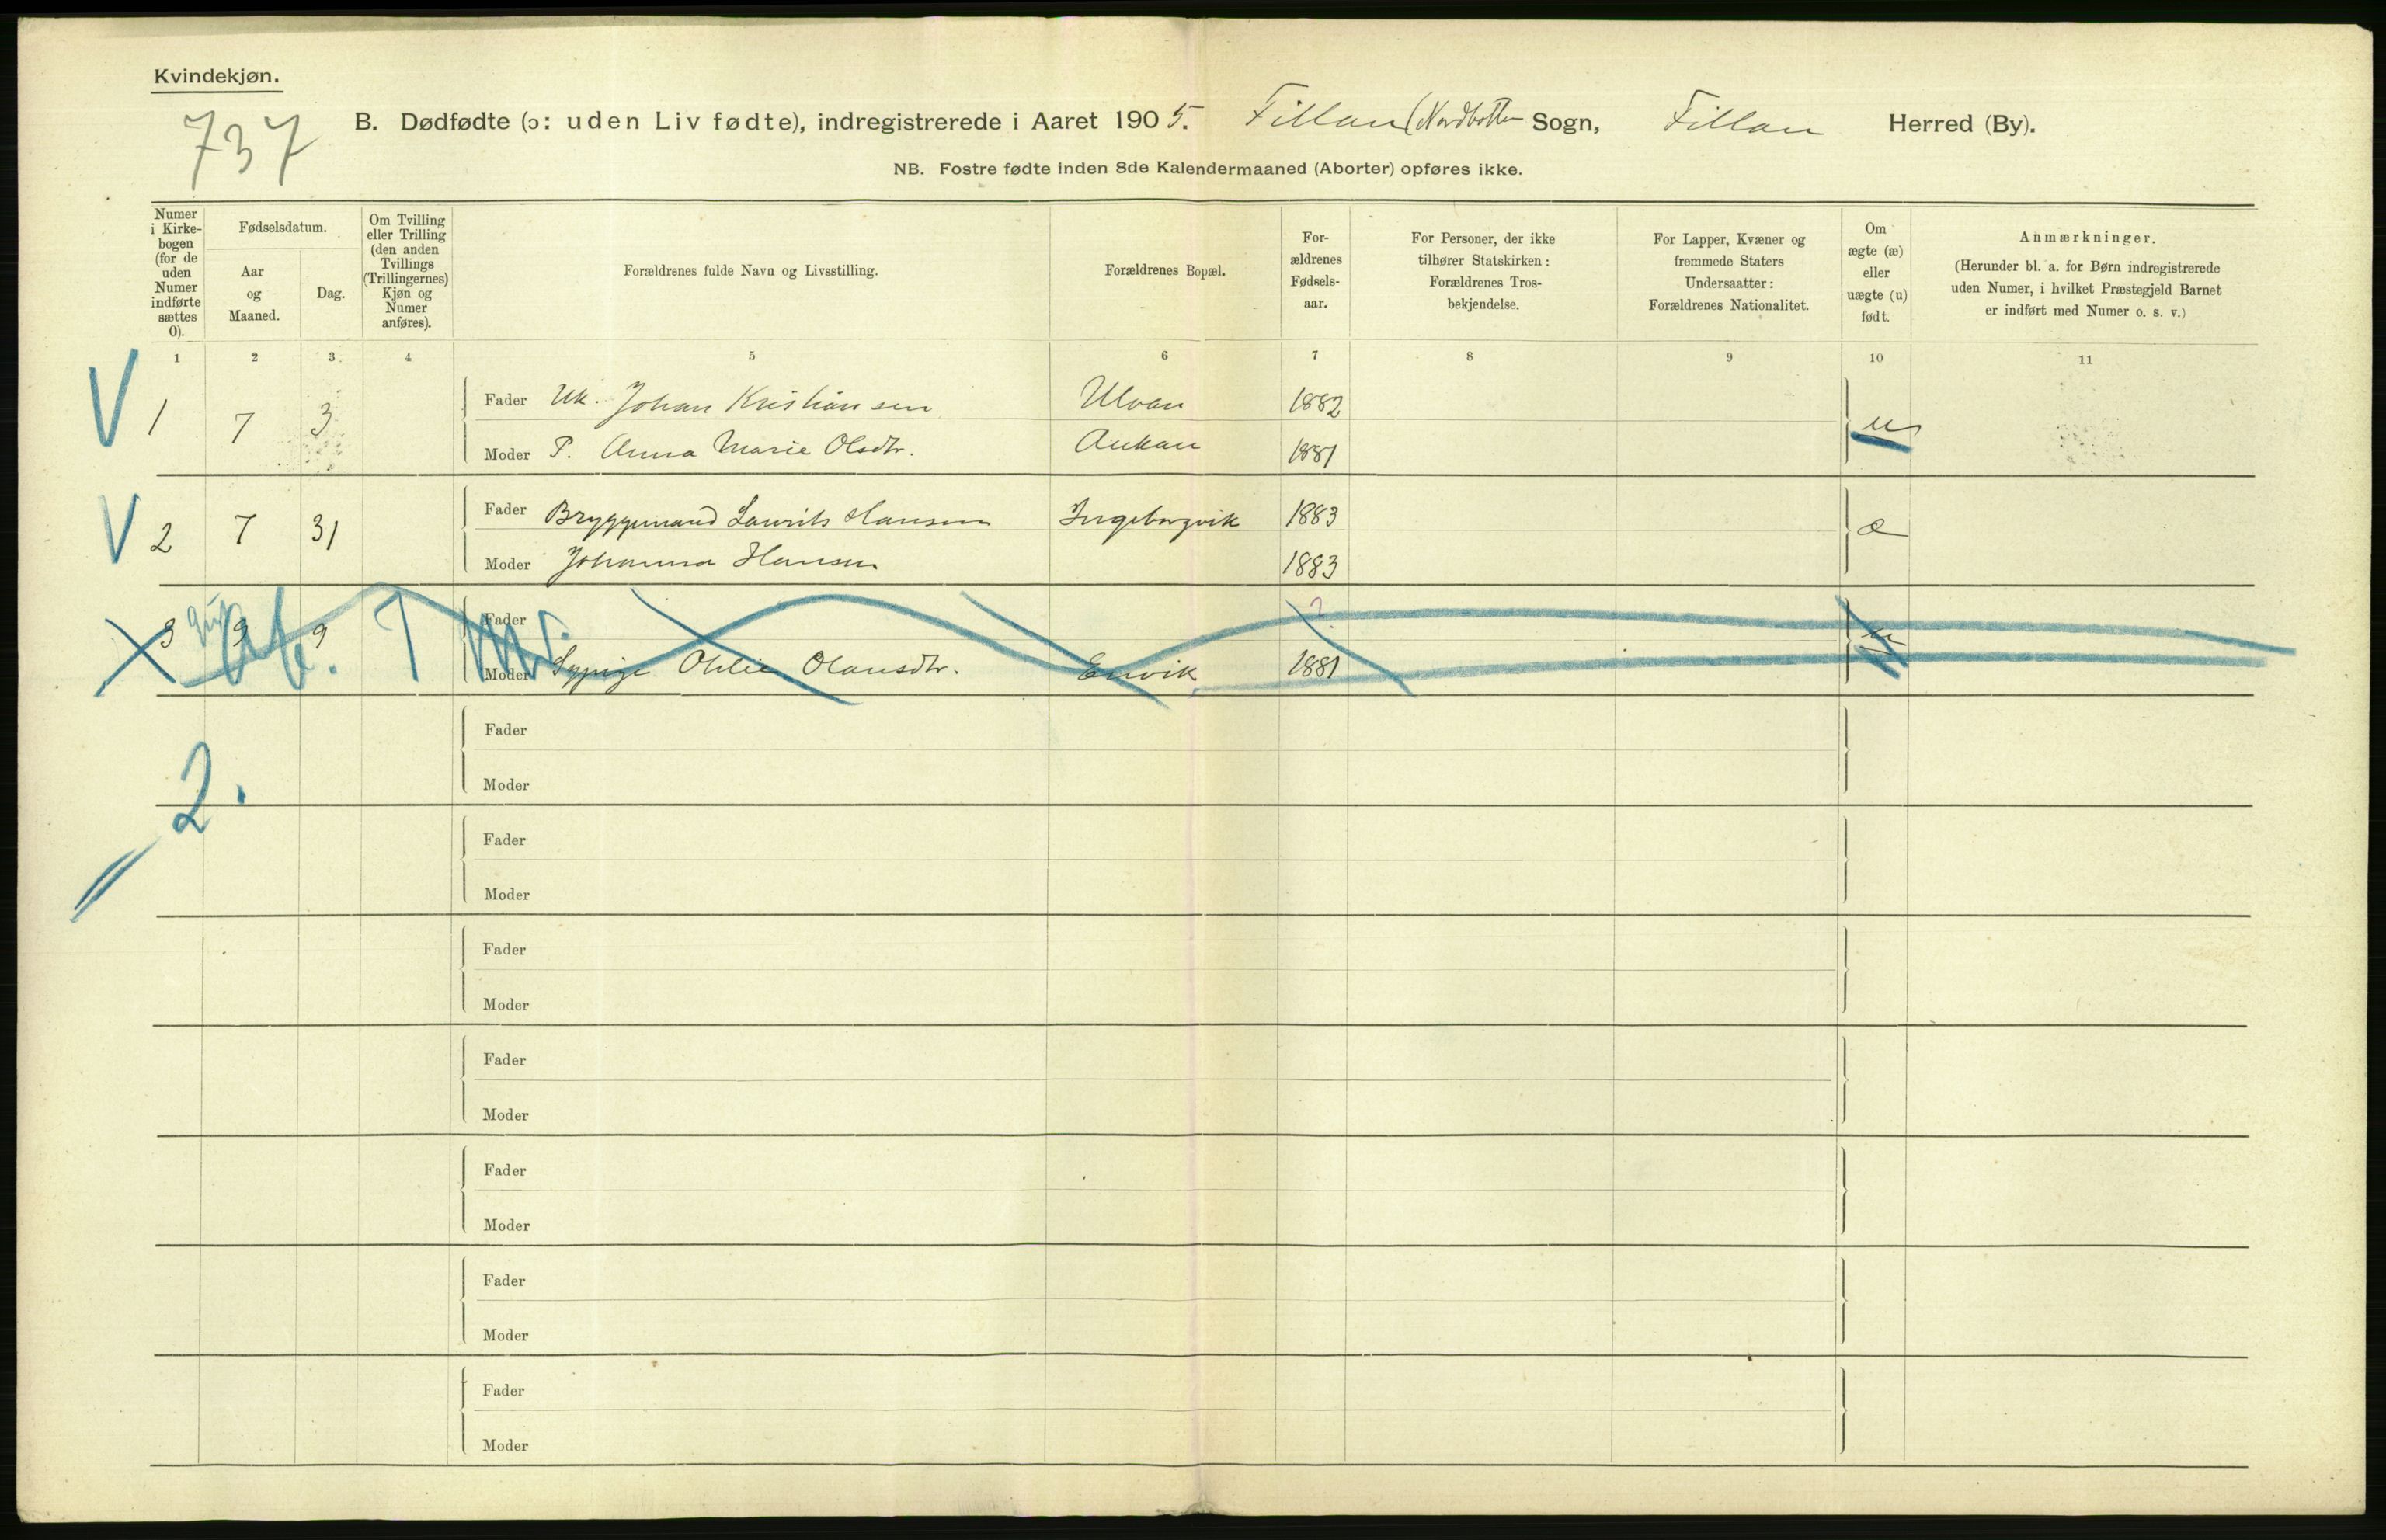 Kvindekjøn.
737
B. Dødfødte (ɔ: uden Liv fødte), indregistrerede i Aaret 1905. Fillan (Nordbotten Sogn, Fillan Herred (By).
NB. Fostre fødte inden 8de Kalendermaaned (Aborter) opføres ikke.
Numer i Kirke-bogen (for de uden Numer indførte sættes 0).
Fødselsdatum.
Aar og Maaned.
Dag.
Om Tvilling eller Trilling (den anden Tvillings (Trillingernes) Kjøn og Numer anføres).
Forældrenes fulde Navn og Livsstilling.
Forældrenes Bopæl.
For-ældrenes Fødsels-aar.
For Personer, der ikke tilhører Statskirken: Forældrenes Tros-bekjendelse.
For Lapper, Kvæner og fremmede Staters Undersaatter: Forældrenes Nationalitet.
Om ægte (æ) eller uægte (u) født.
Anmærkninger.
(Herunder bl. a. for Børn indregistrerede uden Numer, i hvilket Præstegjeld Barnet er indført med Numer o. s. v.)
1 2 3 4 5 6 7 8 9 10 11
V 1 7 3 Fader Uk. Johan Kristiansen Ulvan 1882 u
Moder P. Anna Marie Olsdtr. Aukan 1881
V 2 7 31 Fader Bryggemand Laurits Hansen Ingeborgvik 1883 æ
Moder Johanna Hansen 1883
3 9 9 Fader ? u
Moder Otilie Olausdtr. 1881
2.
Fader
Moder
Fader
Moder
Fader
Moder
Fader
Moder
Fader
Moder
Fader
Moder
Fader
Moder